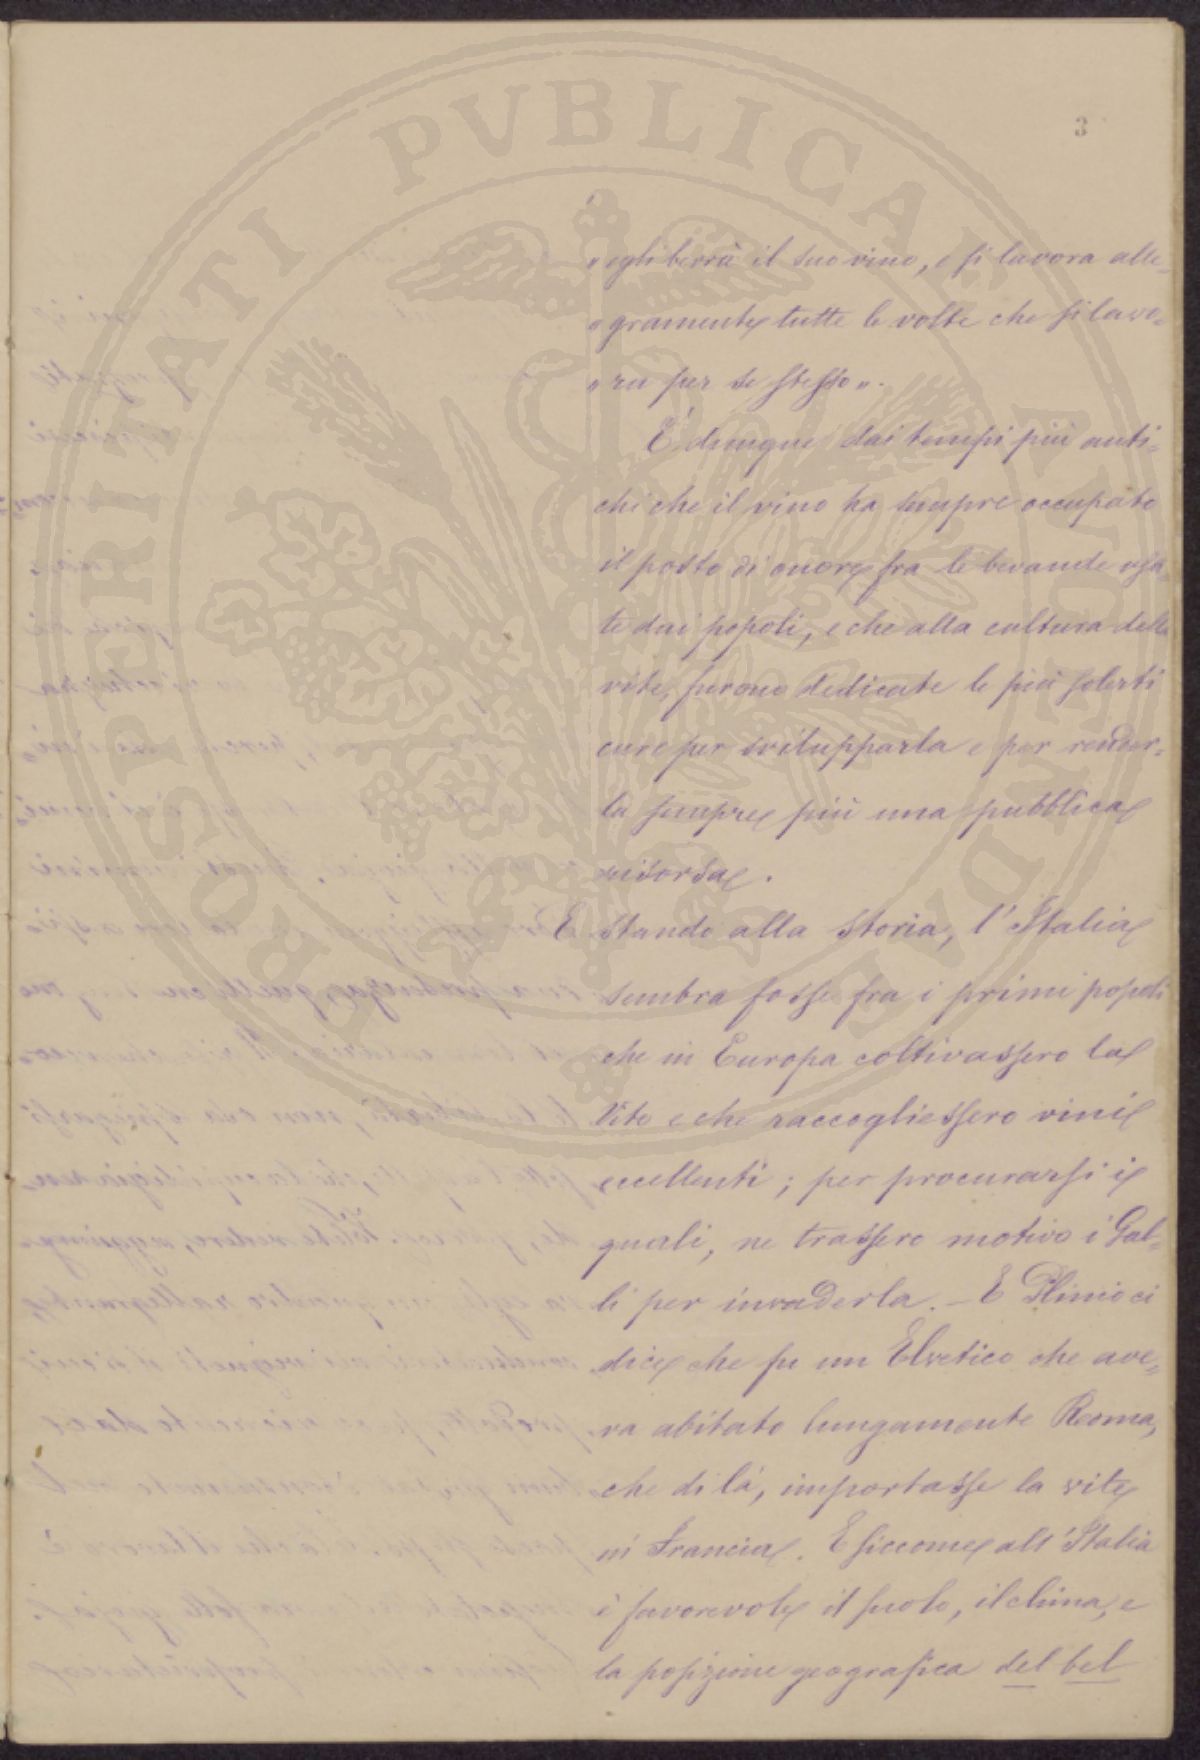 3
„ egli berrà il suo vino, e si lavora alle-
„ gramente tutte le volte che si lavo-
„ ra per se stesso „.
È dunque dai tempi più anti-
chi che il vino ha sempre occupato
il posto di onore fra le bevande usa-
te dai popoli, e che alla coltura della
vite, furono dedicate le più solerti
cure per svilupparla e per render-
la sempre più una pubblica
risorsa.
E stando alla storia, l'Italia
sembra fosse fra i primi popoli
che in Europa coltivassero la
Vite e che raccogliessero vini
eccellenti; per procurarsi i
quali, ne trassero motivo i Gal-
li per invaderla. - E Plinio ci
dice che fu un Elvetico che ave-
va abitato lungamente Roma,
che di là, importasse la vite
in Francia. E siccome all'Italia
è favorevole il suolo, il clima, e
la posizione geografica del bel
PROSPERITATI PVBLICAE AVGENDAE